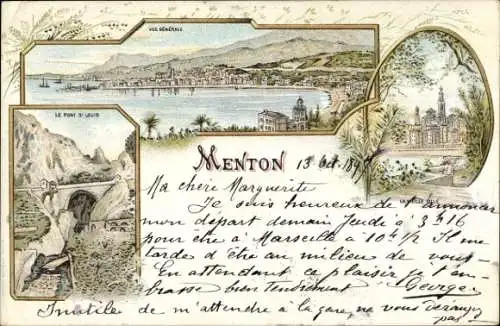 VUE GÉNÉRALE
LE PONT St LOUIS
MENTON
13 Oct. 189
Ma chère Marguerite
Je suis heureux de
mon départ demain Jeudi à 3h16
pour être à Marseille à 10h 1/2 Il me
tarde d'être au milieu de vous.
En attendant ce plaisir je t'em-
brasse bien tendrement George
Inutile de m'attendre à la gare, ne vous dérangez
pas